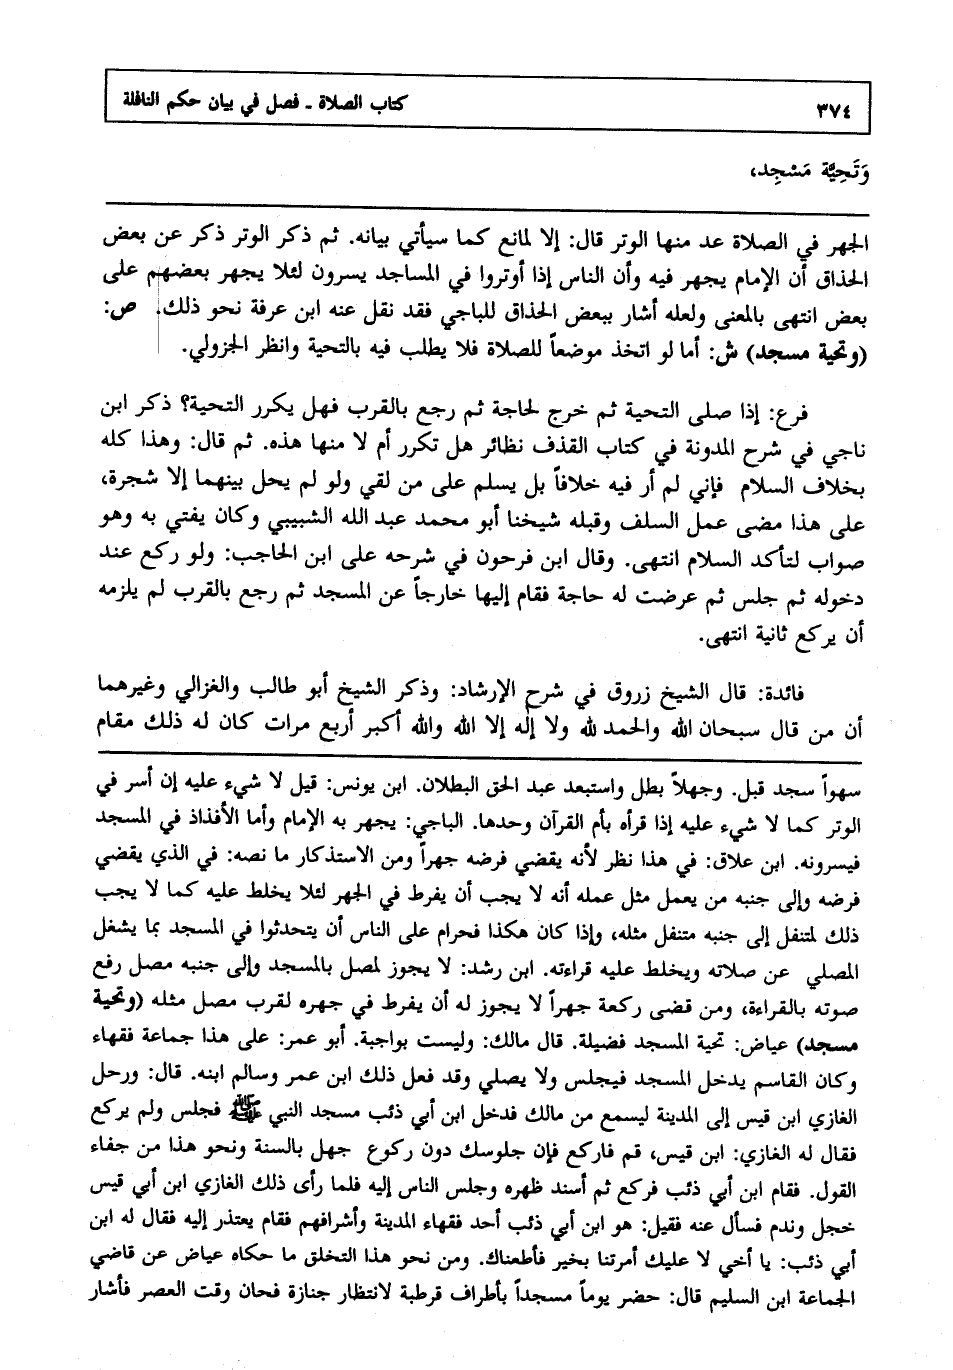 ٣٧٤
كتاب الصلاة ـ فصل في بيان حكم النافلة
وَتَحِيَّة مَسْجِد،
الجهر في الصلاة عد منها الوتر قال: إلا لمانع كما سيأتي بيانه. ثم ذكر الوتر ذكر عن بعض
الحذاق أن الإمام يجهر فيه وأن الناس إذا أوتروا في المساجد يسرون لئلا يجهر بعضهم على
بعض انتهى بالمعنى ولعله أشار ببعض الحذاق للباجي فقد نقل عنه ابن عرفة نحو ذلك. ص:
(وتحية مسجد) ش: أما لو اتخذ موضعاً للصلاة فلا يطلب فيه بالتحية وانظر الجزولي.
فرع: إذا صلى التحية ثم خرج لحاجة ثم رجع بالقرب فهل يكرر التحية؟ ذكر ابن
ناجي في شرح المدونة في كتاب القذف نظائر هل تكرر أم لا منها هذه. ثم قال: وهذا كله
بخلاف السلام فإني لم أر فيه خلافاً بل يسلم على من لقي ولو لم يحل بينهما إلا شجرة،
على هذا مضى عمل السلف وقبله شيخنا أبو محمد عبد الله الشبيبي وكان يفتي به وهو
صواب لتأكد السلام انتهى. وقال ابن فرحون في شرحه على ابن الحاجب: ولو ركع عند
دخوله ثم جلس ثم عرضت له حاجة فقام إليها خارجاً عن المسجد ثم رجع بالقرب لم يلزمه
أن يركع ثانية انتهى.
فائدة: قال الشيخ زروق في شرح الإرشاد: وذكر الشيخ أبو طالب والغزالي وغيرهما
أن من قال سبحان الله والحمد لله ولا إله إلا الله والله أكبر أربع مرات كان له ذلك مقام
سهواً سجد قبل. وجهلاً بطل واستبعد عبد الحق البطلان. ابن يونس: قيل لا شيء عليه إن أسر في
الوتر كما لا شيء عليه إذا قرأه بأم القرآن وحدها. الباجي: يجهر به الإمام وأما الأفذاذ في المسجد
فيسرونه. ابن علاق: في هذا نظر لأنه يقضي فرضه جهراً ومن الاستذكار ما نصه: في الذي يقضي
فرضه وإلى جنبه من يعمل مثل عمله أنه لا يجب أن يفرط في الجهر لئلا يخلط عليه كما لا يجب
ذلك لمتنفل إلى جنبه متنفل مثله، وإذا كان هكذا فحرام على الناس أن يتحدثوا في المسجد بما يشغل
المصلي عن صلاته ويخلط عليه قراءته. ابن رشد: لا يجوز لمصل بالمسجد وإلى جنبه مصل رفع
صوته بالقراءة، ومن قضى ركعة جهراً لا يجوز له أن يفرط في جهره لقرب مصل مثله (وتحية
مسجد) عياض: تحية المسجد فضيلة. قال مالك: وليست بواجبة. أبو عمر: على هذا جماعة فقهاء
وكان القاسم يدخل المسجد فيجلس ولا يصلي وقد فعل ذلك ابن عمر وسالم ابنه. قال: ورحل
الغازي ابن قيس إلى المدينة ليسمع من مالك فدخل ابن أبي ذئب مسجد النبي ﷺ فجلس ولم يركع
فقال له الغازي: ابن قيس، قم فاركع فإن جلوسك دون ركوع جهل بالسنة ونحو هذا من جفاء
القول. فقام ابن أبي ذئب فركع ثم أسند ظهره وجلس الناس إليه فلما رأى ذلك الغازي ابن أبي قيس
خجل وندم فسأل عنه فقيل: هو ابن أبي ذئب أحد فقهاء المدينة وأشرافهم فقام يعتذر إليه فقال له ابن
أبي ذئب: يا أخي لا عليك أمرتنا بخير فأطعناك. ومن نحو هذا التخلق ما حكاه عياض عن قاضي
الجماعة ابن السليم قال: حضر يوماً مسجداً بأطراف قرطبة لانتظار جنازة فحان وقت العصر فأشار